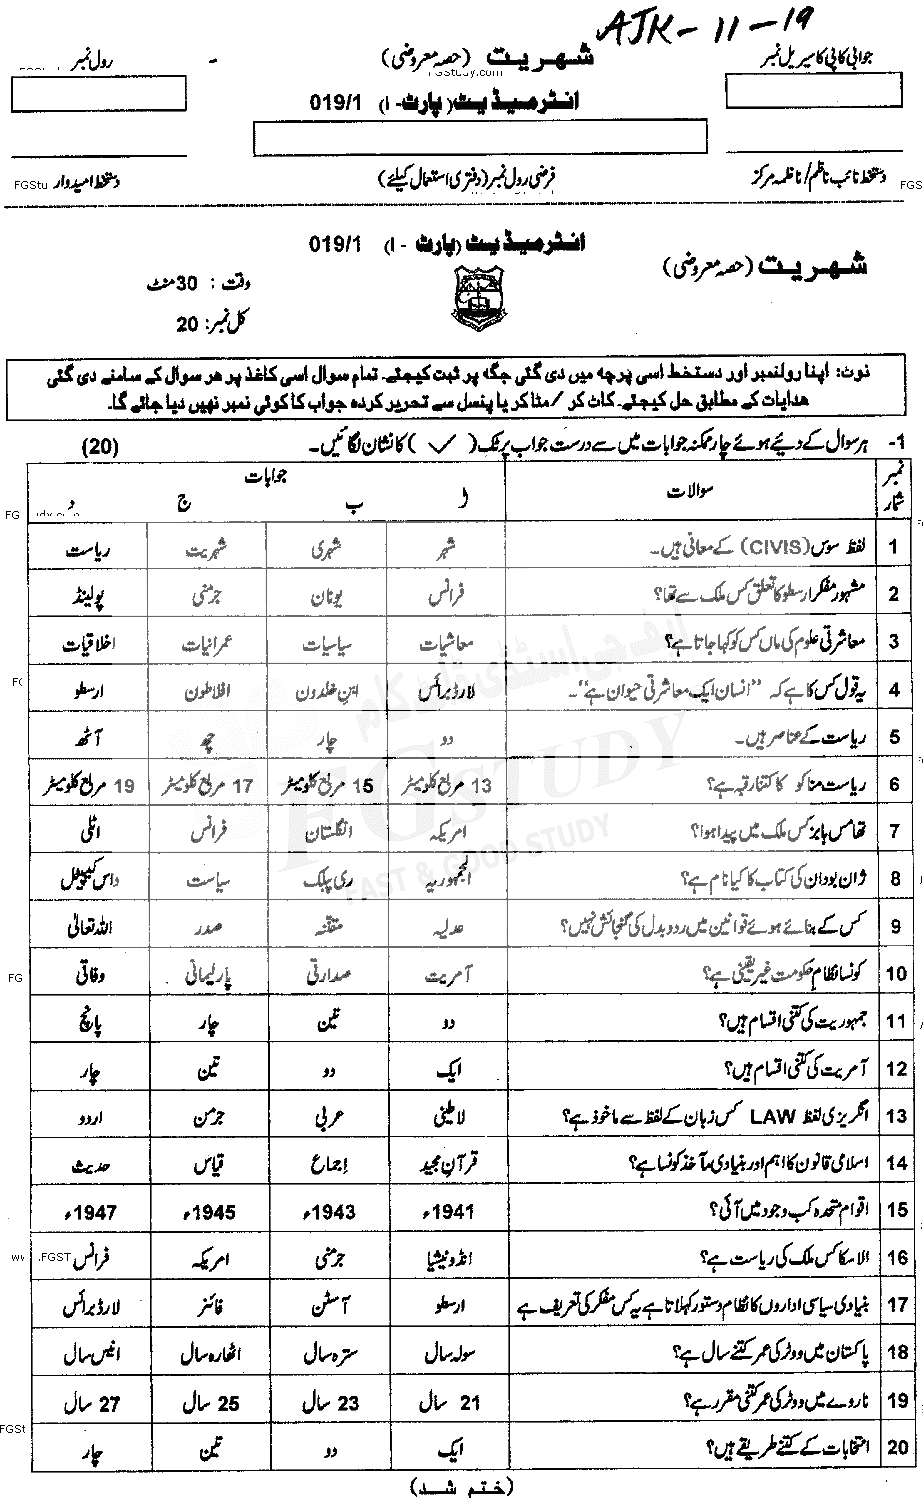 AJK-11-19
جوابی کاپی کا سیریل نمبر
شہریت (حصہ معروضی)
رول نمبر
FGStudy.com
انٹرمیڈیٹ (پارٹ - I) 019/1
دستخط نائب ناظم / ناظمہ مرکز
فرضی رول نمبر (دفتری استعمال کیلئے)
دستخط امیدوار
FGStu
FGS
انٹرمیڈیٹ (پارٹ - I) 019/1
شہریت (حصہ معروضی)
وقت : 30 منٹ
کل نمبر: 20
نوٹ: اپنا رولنمبر اور دستخط اسی پرچہ میں دی گئی جگہ پر ثبت کیجئے۔ تمام سوال اسی کاغذ پر ھر سوال کے سامنے دی گئی
ھدایات کے مطابق حل کیجئے۔ کاٹ کر / مٹا کر یا پنسل سے تحریر کردہ جواب کا کوئی نمبر نہیں دیا جائے گا۔
1- ہر سوال کے دیئے ہوئے چار ممکنہ جوابات میں سے درست جواب پر ٹک ( ✓ ) کا نشان لگائیں۔ (20)
نمبر شمار سوالات جوابات
ا ب ج د
1 لفظ سوس (CIVIS) کے معانی ہیں۔ شہر شہری شہریت ریاست
2 مشہور مفکر ارسطو کا تعلق کس ملک سے تھا؟ فرانس یونان جرمنی پولینڈ
3 معاشرتی علوم کی ماں کس کو کہا جاتا ہے؟ معاشیات سیاسیات عمرانیات اخلاقیات
4 یہ قول کس کا ہے کہ "انسان ایک معاشرتی حیوان ہے"۔ لارڈ برائس ابن خلدون افلاطون ارسطو
5 ریاست کے عناصر ہیں۔ دو چار چھ آٹھ
6 ریاست مناکو کا کتنا رقبہ ہے؟ 13 مربع کلومیٹر 15 مربع کلومیٹر 17 مربع کلومیٹر 19 مربع کلومیٹر
7 تھامس ہابز کس ملک میں پیدا ہوا؟ امریکہ انگلستان فرانس اٹلی
8 ژان بودان کی کتاب کا کیا نام ہے؟ الجمہوریہ ری پبلک سیاست داس کیپیٹل
9 کس کے بنائے ہوئے قوانین میں ردوبدل کی گنجائش نہیں؟ عدلیہ مقننہ صدر اللہ تعالیٰ
10 کونسا نظام حکومت غیر یقینی ہے؟ آمریت صدارتی پارلیمانی وفاقی
11 جمہوریت کی کتنی اقسام ہیں؟ دو تین چار پانچ
12 آمریت کی کتنی اقسام ہیں؟ ایک دو تین چار
13 انگریزی لفظ LAW کس زبان کے لفظ سے ماخوذ ہے؟ لاطینی عربی جرمن اردو
14 اسلامی قانون کا اہم اور بنیادی مآخذ کونسا ہے؟ قرآن مجید اجماع قیاس حدیث
15 اقوام متحدہ کب وجود میں آئی؟ 1941ء 1943ء 1945ء 1947ء
16 الاسکا کس ملک کی ریاست ہے؟ انڈونیشیا جرمنی امریکہ فرانس
17 بنیادی سیاسی اداروں کا نظام دستور کہلاتا ہے یہ کس مفکر کی تعریف ہے ارسطو آسٹن فائنر لارڈ برائس
18 پاکستان میں ووٹر کی عمر کتنے سال ہے؟ سولہ سال سترہ سال اٹھارہ سال انیس سال
19 ناروے میں ووٹر کی عمر کتنی مقرر ہے؟ 21 سال 23 سال 25 سال 27 سال
20 انتخابات کے کتنے طریقے ہیں؟ ایک دو تین چار
(ختم شد)
ایف جی اسٹڈی ڈاٹ کام
FGSTUDY
FAST & GOOD STUDY
FG
FG
.FGST
FGSt